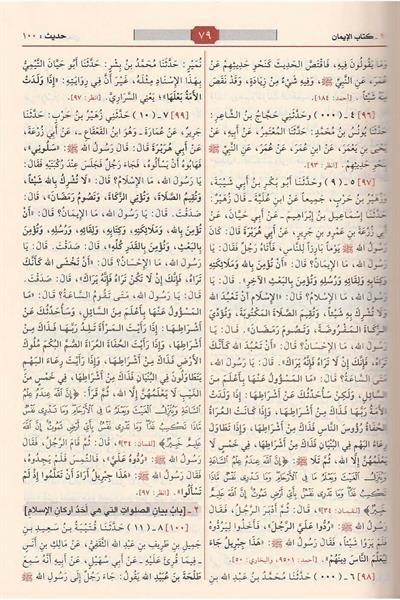 ١ - كتاب الإيمان
٧٩
حديث: ١٠٠
وَمَا يَقُولُونَ فِيهِ، فَاقْتَصَّ الْحَدِيثَ كَنَحْوِ حَدِيثِهِمْ عَنْ
عُمَرَ، عَنِ النَّبِيِّ ﷺ، وَفِيهِ شَيْءٌ مِنْ زِيَادَةٍ، وَقَدْ نَقَصَ
مِنْهُ شَيْئاً. [أحمد: ١٨٤].
[٩٦] ٤ - (٠٠٠) وحَدَّثَنَا حَجَّاجُ بْنُ الشَّاعِرِ:
حَدَّثَنَا يُونُسُ بْنُ مُحَمَّدٍ: حَدَّثَنَا الْمُعْتَمِرُ، عَنْ أَبِيهِ،
عَنْ يَحْيَى بْنِ يَعْمَرَ، عَنِ ابْنِ عُمَرَ، عَنْ عُمَرَ، عَنِ النَّبِيِّ ﷺ
بِنَحْوِ حَدِيثِهِمْ. [انظر: ٩٣].
[٩٧] ٥ - (٩) وحَدَّثَنَا أَبُو بَكْرِ بْنُ أَبِي شَيْبَةَ،
وَزُهَيْرُ بْنُ حَرْبٍ؛ جَمِيعاً عَنِ ابْنِ عُلَيَّةَ - قَالَ زُهَيْرٌ:
حَدَّثَنَا إِسْمَاعِيلُ بْنُ إِبْرَاهِيمَ - عَنْ أَبِي حَيَّانَ، عَنْ
أَبِي زُرْعَةَ بْنِ عَمْرِو بْنِ جَرِيرٍ، عَنْ أَبِي هُرَيْرَةَ قَالَ: كَانَ
رَسُولُ اللهِ ﷺ يَوْماً بَارِزاً لِلنَّاسِ، فَأَتَاهُ رَجُلٌ فَقَالَ: يَا
رَسُولَ اللهِ، مَا الإِيمَانُ؟ قَالَ: «أَنْ تُؤْمِنَ بِاللهِ وَمَلَائِكَتِهِ
وَكِتَابِهِ وَلِقَائِهِ وَرُسُلِهِ وَتُؤْمِنَ بِالْبَعْثِ الآخِرِ». قَالَ: يَا
رَسُولَ اللهِ، مَا الإِسْلَامُ؟ قَالَ: «الإِسْلَامُ أَنْ تَعْبُدَ اللهَ
وَلَا تُشْرِكَ بِهِ شَيْئاً، وَتُقِيمَ الصَّلَاةَ الْمَكْتُوبَةَ، وَتُؤَدِّيَ
الزَّكَاةَ الْمَفْرُوضَةَ، وَتَصُومَ رَمَضَانَ». قَالَ: يَا
رَسُولَ اللهِ، مَا الإِحْسَانُ؟ قَالَ: «أَنْ تَعْبُدَ اللهَ كَأَنَّكَ
تَرَاهُ، فَإِنَّكَ إِنْ لَا تَرَاهُ فَإِنَّهُ يَرَاكَ». قَالَ: يَا
رَسُولَ اللهِ، مَتَى السَّاعَةُ؟ قَالَ: «مَا الْمَسْؤُولُ عَنْهَا بِأَعْلَمَ مِنَ
السَّائِلِ، وَلَكِنْ سَأُحَدِّثُكَ عَنْ أَشْرَاطِهَا: إِذَا وَلَدَتِ الأَمَةُ
رَبَّهَا فَذَاكَ مِنْ أَشْرَاطِهَا، وَإِذَا كَانَتِ الْعُرَاةُ
الْحُفَاةُ رُؤُوسَ النَّاسِ فَذَاكَ مِنْ أَشْرَاطِهَا، وَإِذَا تَطَاوَلَ
رِعَاءُ الْبَهْمِ فِي الْبُنْيَانِ فَذَاكَ مِنْ أَشْرَاطِهَا، فِي خَمْسٍ لَا
يَعْلَمُهُنَّ إِلَّا اللهُ، ثُمَّ تَلَا ﷺ: ﴿إِنَّ اللَّهَ عِندَهُ عِلْمُ
السَّاعَةِ وَيُنَزِّلُ الْغَيْثَ وَيَعْلَمُ مَا فِي الْأَرْحَامِ وَمَا تَدْرِي نَفْسٌ
مَّاذَا تَكْسِبُ غَدًا وَمَا تَدْرِي نَفْسٌ بِأَيِّ أَرْضٍ تَمُوتُ إِنَّ اللَّهَ عَلِيمٌ
خَبِيرٌ﴾ [لقمان: ٣٤]». قَالَ: ثُمَّ أَدْبَرَ الرَّجُلُ، فَقَالَ
رَسُولُ اللهِ ﷺ: «رُدُّوا عَلَيَّ الرَّجُلَ»، فَأَخَذُوا لِيَرُدُّوهُ
فَلَمْ يَرَوْا شَيْئاً، فَقَالَ رَسُولُ اللهِ ﷺ: «هَذَا جِبْرِيلُ جَاءَ
لِيُعَلِّمَ النَّاسَ دِينَهُمْ». [أحمد: ٩٥٠١، والبخاري: ٥٠].
[٩٨] ٦ - (٠٠٠) حَدَّثَنَا مُحَمَّدُ بْنُ عَبْدِ اللهِ بْنِ
نُمَيْرٍ: حَدَّثَنَا مُحَمَّدُ بْنُ بِشْرٍ: حَدَّثَنَا أَبُو حَيَّانَ التَّيْمِيُّ
بِهَذَا الإِسْنَادِ مِثْلَهُ، غَيْرَ أَنَّ فِي رِوَايَتِهِ: «إِذَا وَلَدَتِ
الأَمَةُ بَعْلَهَا»؛ يَعْنِي السَّرَارِيَّ. [انظر: ٩٧].
[٩٩] ٧ - (١٠) حَدَّثَنِي زُهَيْرُ بْنُ حَرْبٍ: حَدَّثَنَا
جَرِيرٌ، عَنْ عُمَارَةَ - وَهُوَ ابْنُ الْقَعْقَاعِ -، عَنْ أَبِي زُرْعَةَ،
عَنْ أَبِي هُرَيْرَةَ قَالَ: قَالَ رَسُولُ اللهِ ﷺ: «سَلُونِي»،
فَهَابُوهُ أَنْ يَسْأَلُوهُ، فَجَاءَ رَجُلٌ فَجَلَسَ عِنْدَ رُكْبَتَيْهِ فَقَالَ:
يَا رَسُولَ اللهِ، مَا الإِسْلَامُ؟ قَالَ: «لَا تُشْرِكُ بِاللهِ شَيْئاً،
وَتُقِيمُ الصَّلَاةَ، وَتُؤْتِي الزَّكَاةَ، وَتَصُومُ رَمَضَانَ». قَالَ:
صَدَقْتَ. قَالَ: يَا رَسُولَ اللهِ، مَا الإِيمَانُ؟ قَالَ: «أَنْ
تُؤْمِنَ بِاللهِ، وَمَلَائِكَتِهِ، وَكِتَابِهِ، وَلِقَائِهِ، وَرُسُلِهِ، وَتُؤْمِنَ
بِالْبَعْثِ، وَتُؤْمِنَ بِالْقَدَرِ كُلِّهِ». قَالَ: صَدَقْتَ. قَالَ: يَا
رَسُولَ اللهِ، مَا الإِحْسَانُ؟ قَالَ: «أَنْ تَخْشَى اللهَ كَأَنَّكَ
تَرَاهُ، فَإِنَّكَ إِنْ لَا تَكُنْ تَرَاهُ فَإِنَّهُ يَرَاكَ». قَالَ: صَدَقْتَ.
قَالَ: يَا رَسُولَ اللهِ، مَتَى تَقُومُ السَّاعَةُ؟ قَالَ: «مَا
الْمَسْؤُولُ عَنْهَا بِأَعْلَمَ مِنَ السَّائِلِ، وَسَأُحَدِّثُكَ عَنْ
أَشْرَاطِهَا: إِذَا رَأَيْتَ الْمَرْأَةَ تَلِدُ رَبَّهَا فَذَاكَ مِنْ
أَشْرَاطِهَا، وَإِذَا رَأَيْتَ الْحُفَاةَ الْعُرَاةَ الصُّمَّ الْبُكْمَ مُلُوكَ
الأَرْضِ فَذَاكَ مِنْ أَشْرَاطِهَا، وَإِذَا رَأَيْتَ رِعَاءَ الْبَهْمِ
يَتَطَاوَلُونَ فِي الْبُنْيَانِ فَذَاكَ مِنْ أَشْرَاطِهَا، فِي خَمْسٍ مِنَ
الْغَيْبِ لَا يَعْلَمُهُنَّ إِلَّا اللهُ، ثُمَّ قَرَأَ: ﴿إِنَّ اللَّهَ عِندَهُ عِلْمُ
السَّاعَةِ وَيُنَزِّلُ الْغَيْثَ وَيَعْلَمُ مَا فِي الْأَرْحَامِ وَمَا تَدْرِي نَفْسٌ
مَّاذَا تَكْسِبُ غَدًا وَمَا تَدْرِي نَفْسٌ بِأَيِّ أَرْضٍ تَمُوتُ إِنَّ اللَّهَ
عَلِيمٌ خَبِيرٌ﴾ [لقمان: ٣٤]». قَالَ: ثُمَّ قَامَ الرَّجُلُ، فَقَالَ
رَسُولُ اللهِ ﷺ: «رُدُّوهُ عَلَيَّ»، فَالْتُمِسَ فَلَمْ يَجِدُوهُ،
فَقَالَ رَسُولُ اللهِ ﷺ: «هَذَا جِبْرِيلُ أَرَادَ أَنْ تَعَلَّمُوا إِذْ لَمْ
تَسْأَلُوا». [انظر: ٩٧].
٢ - [بابُ بيانِ الصلواتِ التي هي أحَدُ أركانِ الإسلامِ]
[١٠٠] ٨ - (١١) حَدَّثَنَا قُتَيْبَةُ بْنُ سَعِيدِ بْنِ
جَمِيلِ بْنِ طَرِيفِ بْنِ عَبْدِ اللهِ الثَّقَفِيُّ، عَنْ مَالِكِ بْنِ أَنَسٍ
- فِيمَا قُرِئَ عَلَيْهِ - عَنْ أَبِي سُهَيْلٍ، عَنْ أَبِيهِ أَنَّهُ سَمِعَ
طَلْحَةَ بْنَ عُبَيْدِ اللهِ يَقُولُ: جَاءَ رَجُلٌ إِلَى رَسُولِ اللهِ ﷺ